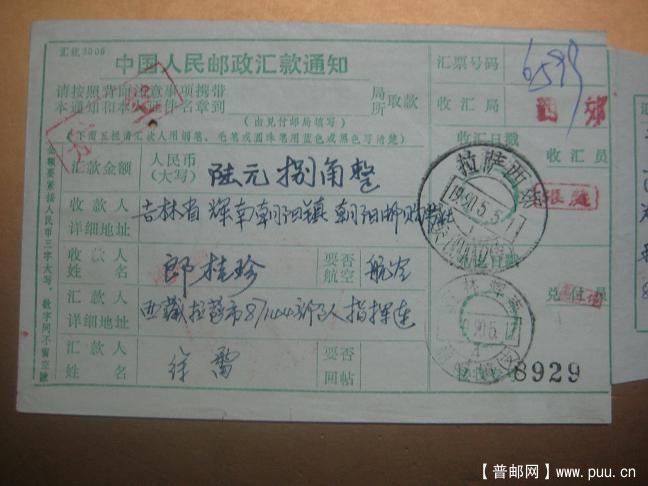 汇号3006
中国人民邮政汇款通知
汇票号码
6599
请按照背面注意事项携带
本通知和本人证件名章到
局
所
取款
收汇局
西郊
(由兑付邮局填写)
收汇日戳
收汇员
(下面五栏请汇款人用钢笔、毛笔或圆珠笔用蓝色或黑色写清楚)
汇款金额
人民币
(大写)
陆元捌角整
收款人
详细地址
吉林省辉南朝阳镇朝阳邮购书社
收款人
姓名
郎桂珍
要否
航空
航空
汇款人
详细地址
西藏拉萨市87144部队指挥连
汇款人
姓名
徐雷
要否
回帖
拉萨西郊
1990.5.5.17
1990.5.17
8929
金额要紧接人民币三字大写,数字间不留空隙
【普邮网】www.puu.cn